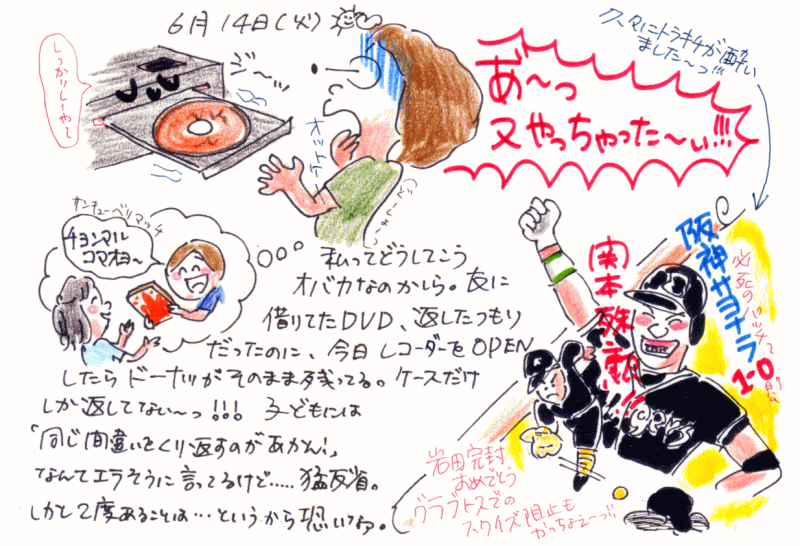 6月14日(火)
しっかりしーやー
ジ〜ッ
オットケ
久々にトラキチが酔い
ました〜っ!!!
あ〜っ
又やっちゃった〜ぃ!!!
サンキューベリマッチ
チョンマル
コマオヨ〜
私ってどうしてこう
オバカなのかしら。友に
借りてたDVD、返したつもり
だったのに、今日レコーダーをOPEN
したらドーナツがそのまま残ってる。ケースだけ
しか返してない〜っ!!! 子どもには
「同じ間違いをくり返すのがあかん!」
なんてエラそうに言ってるけど.....猛反省。
しかし2度あることは…というから恐いなぁ。
阪神サヨナラ
1-0
関本殊勲!!
岩田完封
おめでとう
グラブトスでの
スクイズ阻止も
かっちょえーっ!!